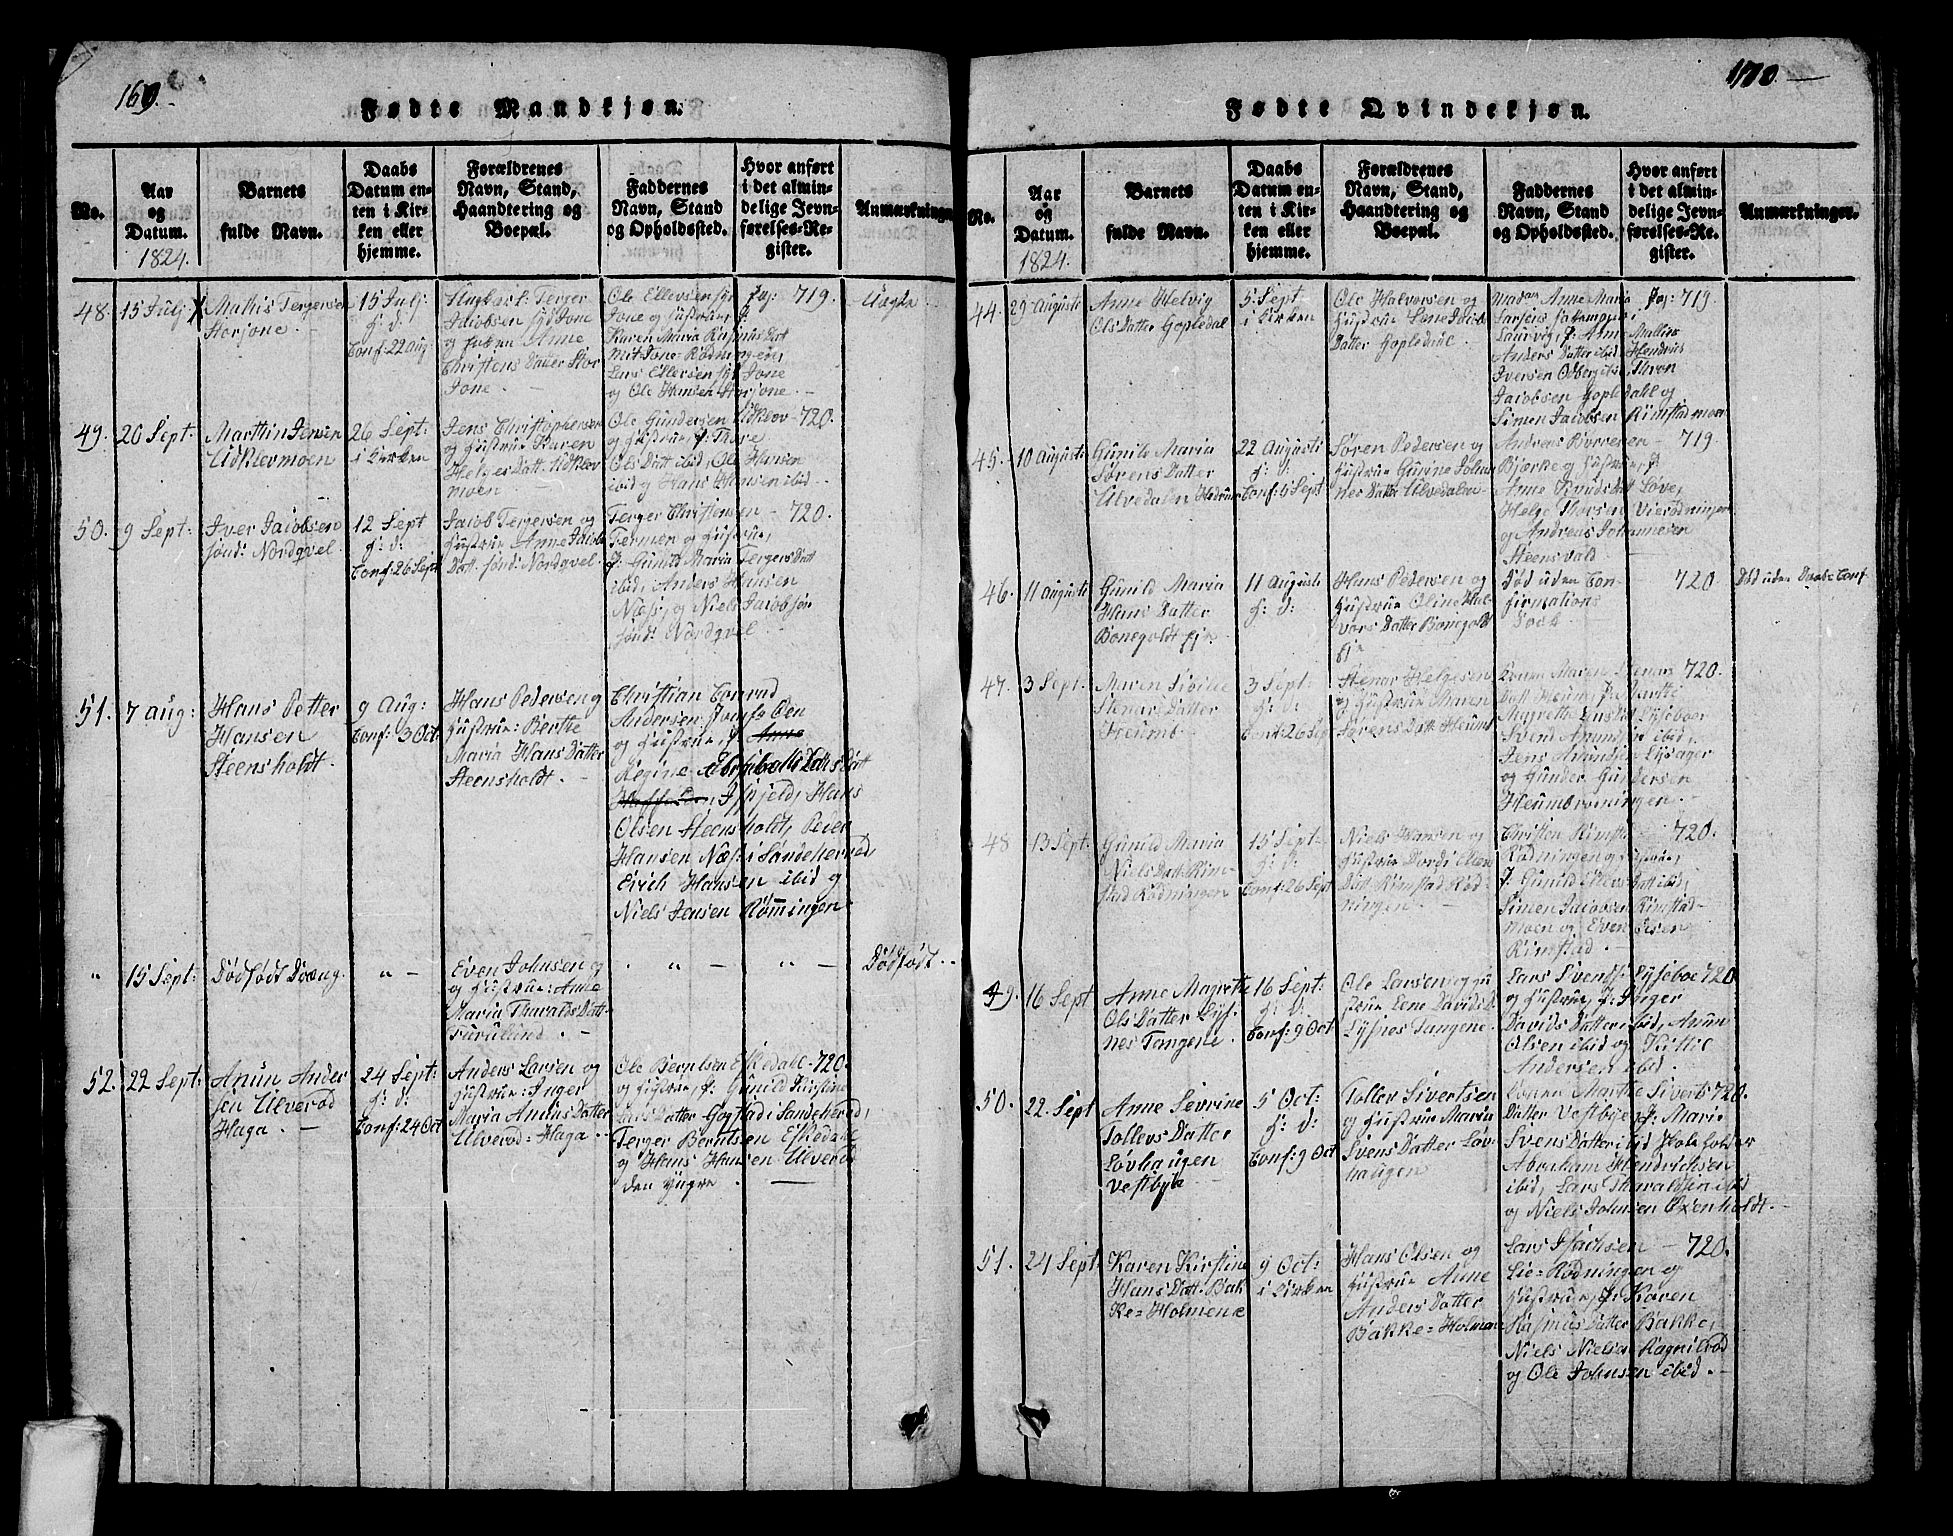 169.
Fødte Mandkjøn.
No.
Aar
og
Datum.
1824.
Barnets
fulde Navn.
Daabs
Datum en-
ten i Kir-
ken eller
hjemme.
Forældrenes
Navn, Stand,
Haandtering og
Boepæl.
Faddernes
Navn, Stand
og Opholdssted.
Hvor anført
i det almin-
delige Jevn-
førelses-Re-
gister.
Anmærkninger
48.
15 Julj
Mathis Tergersen
Storjone.
15 Julj:
H: D:
Conf: 22 aug:
Ungkarl: Terger
Jacobsen
og Anne
Christens Datter Stor
Jone.
Ole Ellevsen
Jone og Hustrue,
Karen Maria Rasmus Dat
Lars Ellevsen
og Ole Hansen Storjone.
Pag: 719.
Uægte
49.
20 Sept:
Marthin Jensen
Lidklevmoen
26 Sept:
i Kirken
Jens Christophersen
og Hustrue Karen
Helges Datt: Lidklev
moen
Ole Gundersen Lidklev
og Hustrue, J: Thore
Ols Datt ibid, Ole Hansen
ibid og Hans Hansen ibid.
720.
50.
9 Sept:
Iver Jacobsen
sønd: Nordqvel.
12 Sept
H: D:
Conf: 26 Sept
Jacob Tergersen og
Hustrue Anne Jacobs
Datt. sønd: Nordqvel.
Terger Christensen
Fermen og Hustrue,
J: Gunild Maria Tergers Datt
ibid, Anders Hansen
Næss, og Niels Jacobsøn
sønd: Nordqvel.
720.
51.
7 aug:
Hans Petter
Hansen
Steensholdt.
9 Aug:
Conf: 3 Oct:
Hans Pedersen og
Hustrue: Berthe
Maria Hans Datter
Steensholdt.
Christian Conrad
Andersen
og Hustrue, J Anne
Regine Lars Datt
Hans
Olsen Steensholdt, Peder
Hansen Næss i Sandeherred,
Erich Hansen ibid og
Niels Jensen Rømmingen
"
15 Sept:
Dødfødt Dræng.
" —
Even Johnsen og
og Hustrue: Anne
Maria Tharalds Datt
Farulund.
" —
" —
Dødfødt.
52.
22 Sept:
Anun Ander
sen Ulverød
Haga.
24 Sept:
H: D:
Conf: 24 Oct
Anders Larsen og
Hustrue: Inger
Maria Anuns Datter
Ulverød=Haga.
Ole Berntsen Eskedahl
og Hustrue, J: Gunild Kirstine
Lars Datter Gogstad i Sandeherred,
Terger Berntsen Eskedahl
og Hans Hansen Ulverød
den yngre.
720.
170.
Fødte Qvindekjøn.
No.
Aar
og
Datum.
1824.
Barnets
fulde Navn.
Daabs
Datum en-
ten i Kir-
ken eller
hjemme.
Forældrenes
Navn, Stand,
Haandtering og
Boepæl.
Faddernes
Navn, Stand
og Opholdssted.
Hvor anført
i det almin-
delige Jevn-
førelses-Re-
gister.
Anmærkninger.
44.
29 Augusti
Anne Helvig
Ols Datter Gopledal
5 Sept
i Kirken
Ole Halvorsen og
Hustrue Lene Jacobs
Datter Gopledal.
Madam Anne Maria
Larsens
Laurvig, J: Anne Mallene
Anders Datter ibid, Hendrik
Iversen Odberg ibid, Thron
Jacobsen Gopledahl og
Simen Jacobsen Rimstadmoen
Pag: 719
45.
10 Augusti
Gunile Maria
Sørens Datter
Ulvedalen
22 Augusti
H: D:
Conf: 5 Sept
Søren Pedersen og
Hustrue Gurine Johan
nes Datter Ulvedalen
Andreas Børresen
Bjerke og Hustrue, J:
Anne Knuds Datt Love,
Helge Thorsen Vierødningen
og Andreas Johannesen
Steensvald
719.
46.
11 Augusti
Gunild Maria
Hans Datter
Bonegoldt
11 Augusti
H: D:
Hans Pedersen og
Hustrue Oline Hal-
vors Datter Bonegoldt
Død uden Con-
firmations
720.
Død uden Daabs Conf
47.
3 Sept.
Maren Sibille
Stenars Datter
Heumb
3 Sept
H: D:
Conf: 26 Sep
Stenar Helgesen
og Hustrue Maren
Sørens Datt Heumb
Konen Maren Stenars
Datt Heum, J: Marthe
Majrethe Lyseboer
Svend Anunds ibid,
Jens Amundsen Lysager
og Gunder Gundersen
Heumbrøningen.
720.
48
13 Sept:
Gunild Maria
Niels Datt: Rim-
stad Rødningen
15 Sept:
H: D:
Conf: 26 Sept
Niels Hansen og
Hustrue Dorde Ellen
Datt Rimstad Rød-
ningen
Christen Rimstad
Rødningen og Hustrue,
J: Gunild Ellevs Datt ibid,
Simen Jacobsen Rimstad-
moen og Even Olsen
Rimstad.
720.
49.
16 Sept
Anne Majrethe
Ols Datter Lys-
nes Tangene.
16 Sept:
H: D:
Conf: 9 Oct
Ole Larsen og Hu
strue Lene Davids D.
Lysnes Tangene.
Lars Svends: Lyseboe
og Hustrue, J: Inger
Davids Datter ibid, Anun
Olsen ibid og Kittil
Andersen ibid.
720
50.
22. Sept
Anne Sevrine
Tollevs Datter
Løvhaugen
Vestbye
5 Oct:
H: D:
Conf: 9 Oct
Toller Sivertsen
og Hustrue Maria
Svens Datter Løv-
haugen
Konen Marthe Siverts
Datter Vestbye, J: Mari
Svens Datter ibid
Abraham Hendrichsen
ibid, Lars Tharaldsen ibid
og Niels Johnsen Oxenholdt.
720.
51.
24 Sept:
Karen Kirstine
Hans Datt: Bak
ke=Holmene
9 Oct:
i Kirken
Hans Olsen og
Hustrue Anne
Anders Datter
Bakke=Holmene
Lars Isachsen
Lie=Rødningen og
Hustrue, J: Karen
Rasmus Datter Bakke,
Niels Nielsen Ragnilrød
og Ole Johnsen ibid.
720.